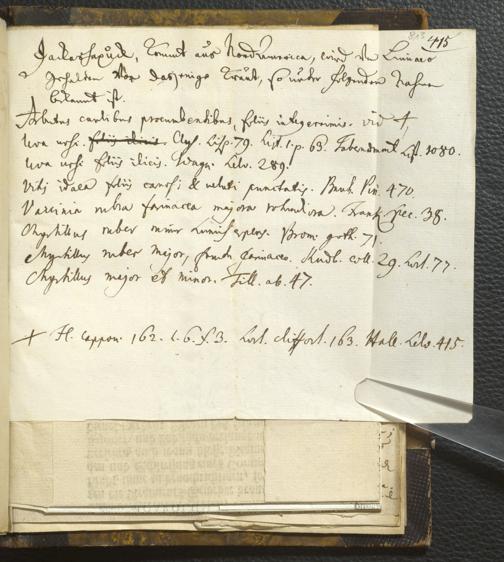 415
Jackashapuck, kommt aus Nordamerica, wird von Linnaeo
gehalten vor dasjenige Kraut, so unter folgenden Nahmen
bekannt ist.
Arbutus caulibus procumbentibus, foliis integerrimis. vid +,
Uva ursi. foliis ilicis. Clus. hisp. 79. hist. 1. p. 63. Tabernaemont. hist. 1080.
Uva ursi foliis ilicis. Wagn. Helv. 289.
Vitis idaea foliis carnosis & veluti punctatis. Bauh. Pin. 470.
Vaccinia rubra farinacea majora rotundiora. Frank. Spec. 38.
Myrtillus ruber minor humi serpens. Brom. goth. 71.
Myrtillus ruber major, fructu farinaceo. Rudb. cat. 29. hort. 77.
Myrtillus major et minor. Till. ab. 47.
+ Fl. Lappon. 162. t. 6. f. 3. hort. Cliffort. 163. Hall. Helv. 415.